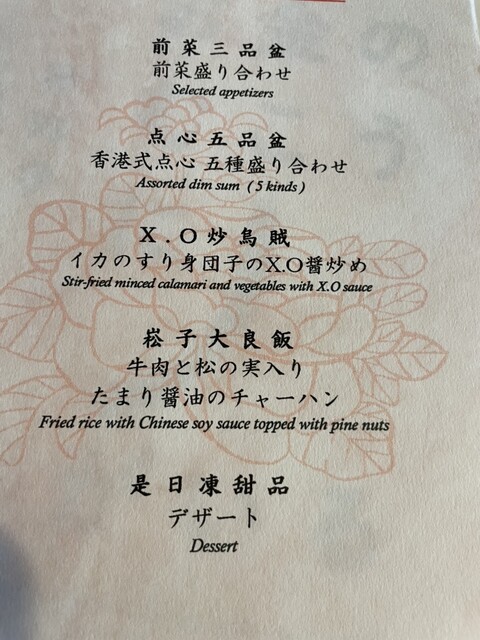 前菜三品盆
前菜盛り合わせ
Selected appetizers
点心五品盆
香港式点心 五種盛り合わせ
Assorted dim sum ( 5 kinds )
X.O炒烏賊
イカのすり身団子のX.O醤炒め
Stir-fried minced calamari and vegetables with X.O sauce
菘子大良飯
牛肉と松の実入り
たまり醤油のチャーハン
Fried rice with Chinese soy sauce topped with pine nuts
是日凍甜品
デザート
Dessert